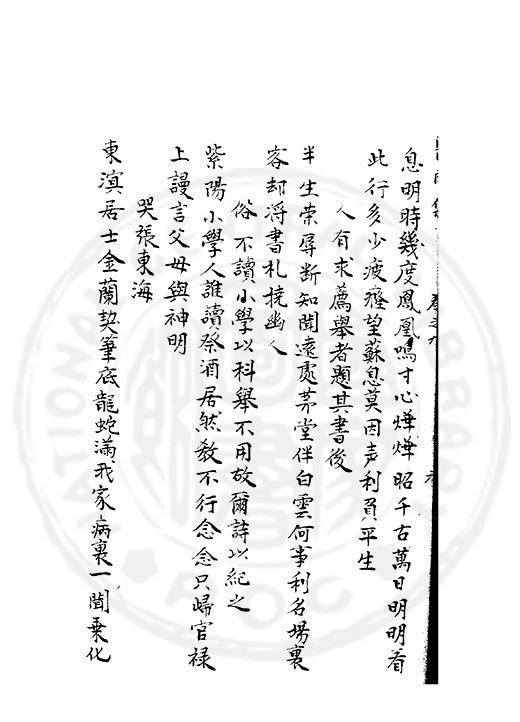 息明時幾度鳳凰鳴寸心燁燁昭千古萬日明明看
此行多少疲癃望蘇息莫因声利負平生
人有求薦舉者題其書後
半生荣辱斷知聞遠處茅堂伴白雲何事利名場裏
客却将書札撓幽人
俗不讀小學以科舉不用故爾詩以紀之
紫陽小學人誰讀祭酒居然教不行念念只歸官禄
上謾言父母與神明
哭張東海
東滇居士金蘭契筆底龍蛇滿我家病裏一聞乗化